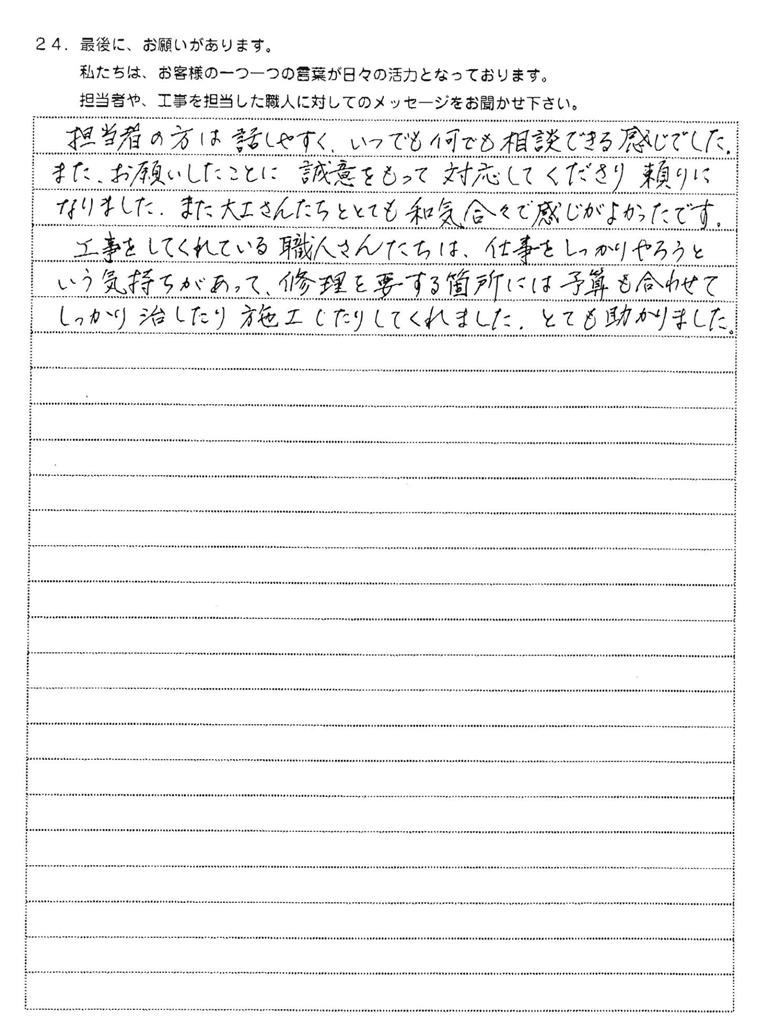 24．最後に、お願いがあります。
私たちは、お客様の一つ一つの言葉が日々の活力となっております。
担当者や、工事を担当した職人に対してのメッセージをお聞かせ下さい。
担当者の方は話しやすく、いつでも何でも相談できる感じでした。
また、お願いしたことに誠意をもって対応してくださり頼りに
なりました。また大工さんたちととても和気合々で感じがよかったです。
工事をしてくれている職人さんたちは、仕事をしっかりやろうと
いう気持ちがあって、修理を要する箇所には予算も合わせて
しっかり治したり施工したりしてくれました。とても助かりました。